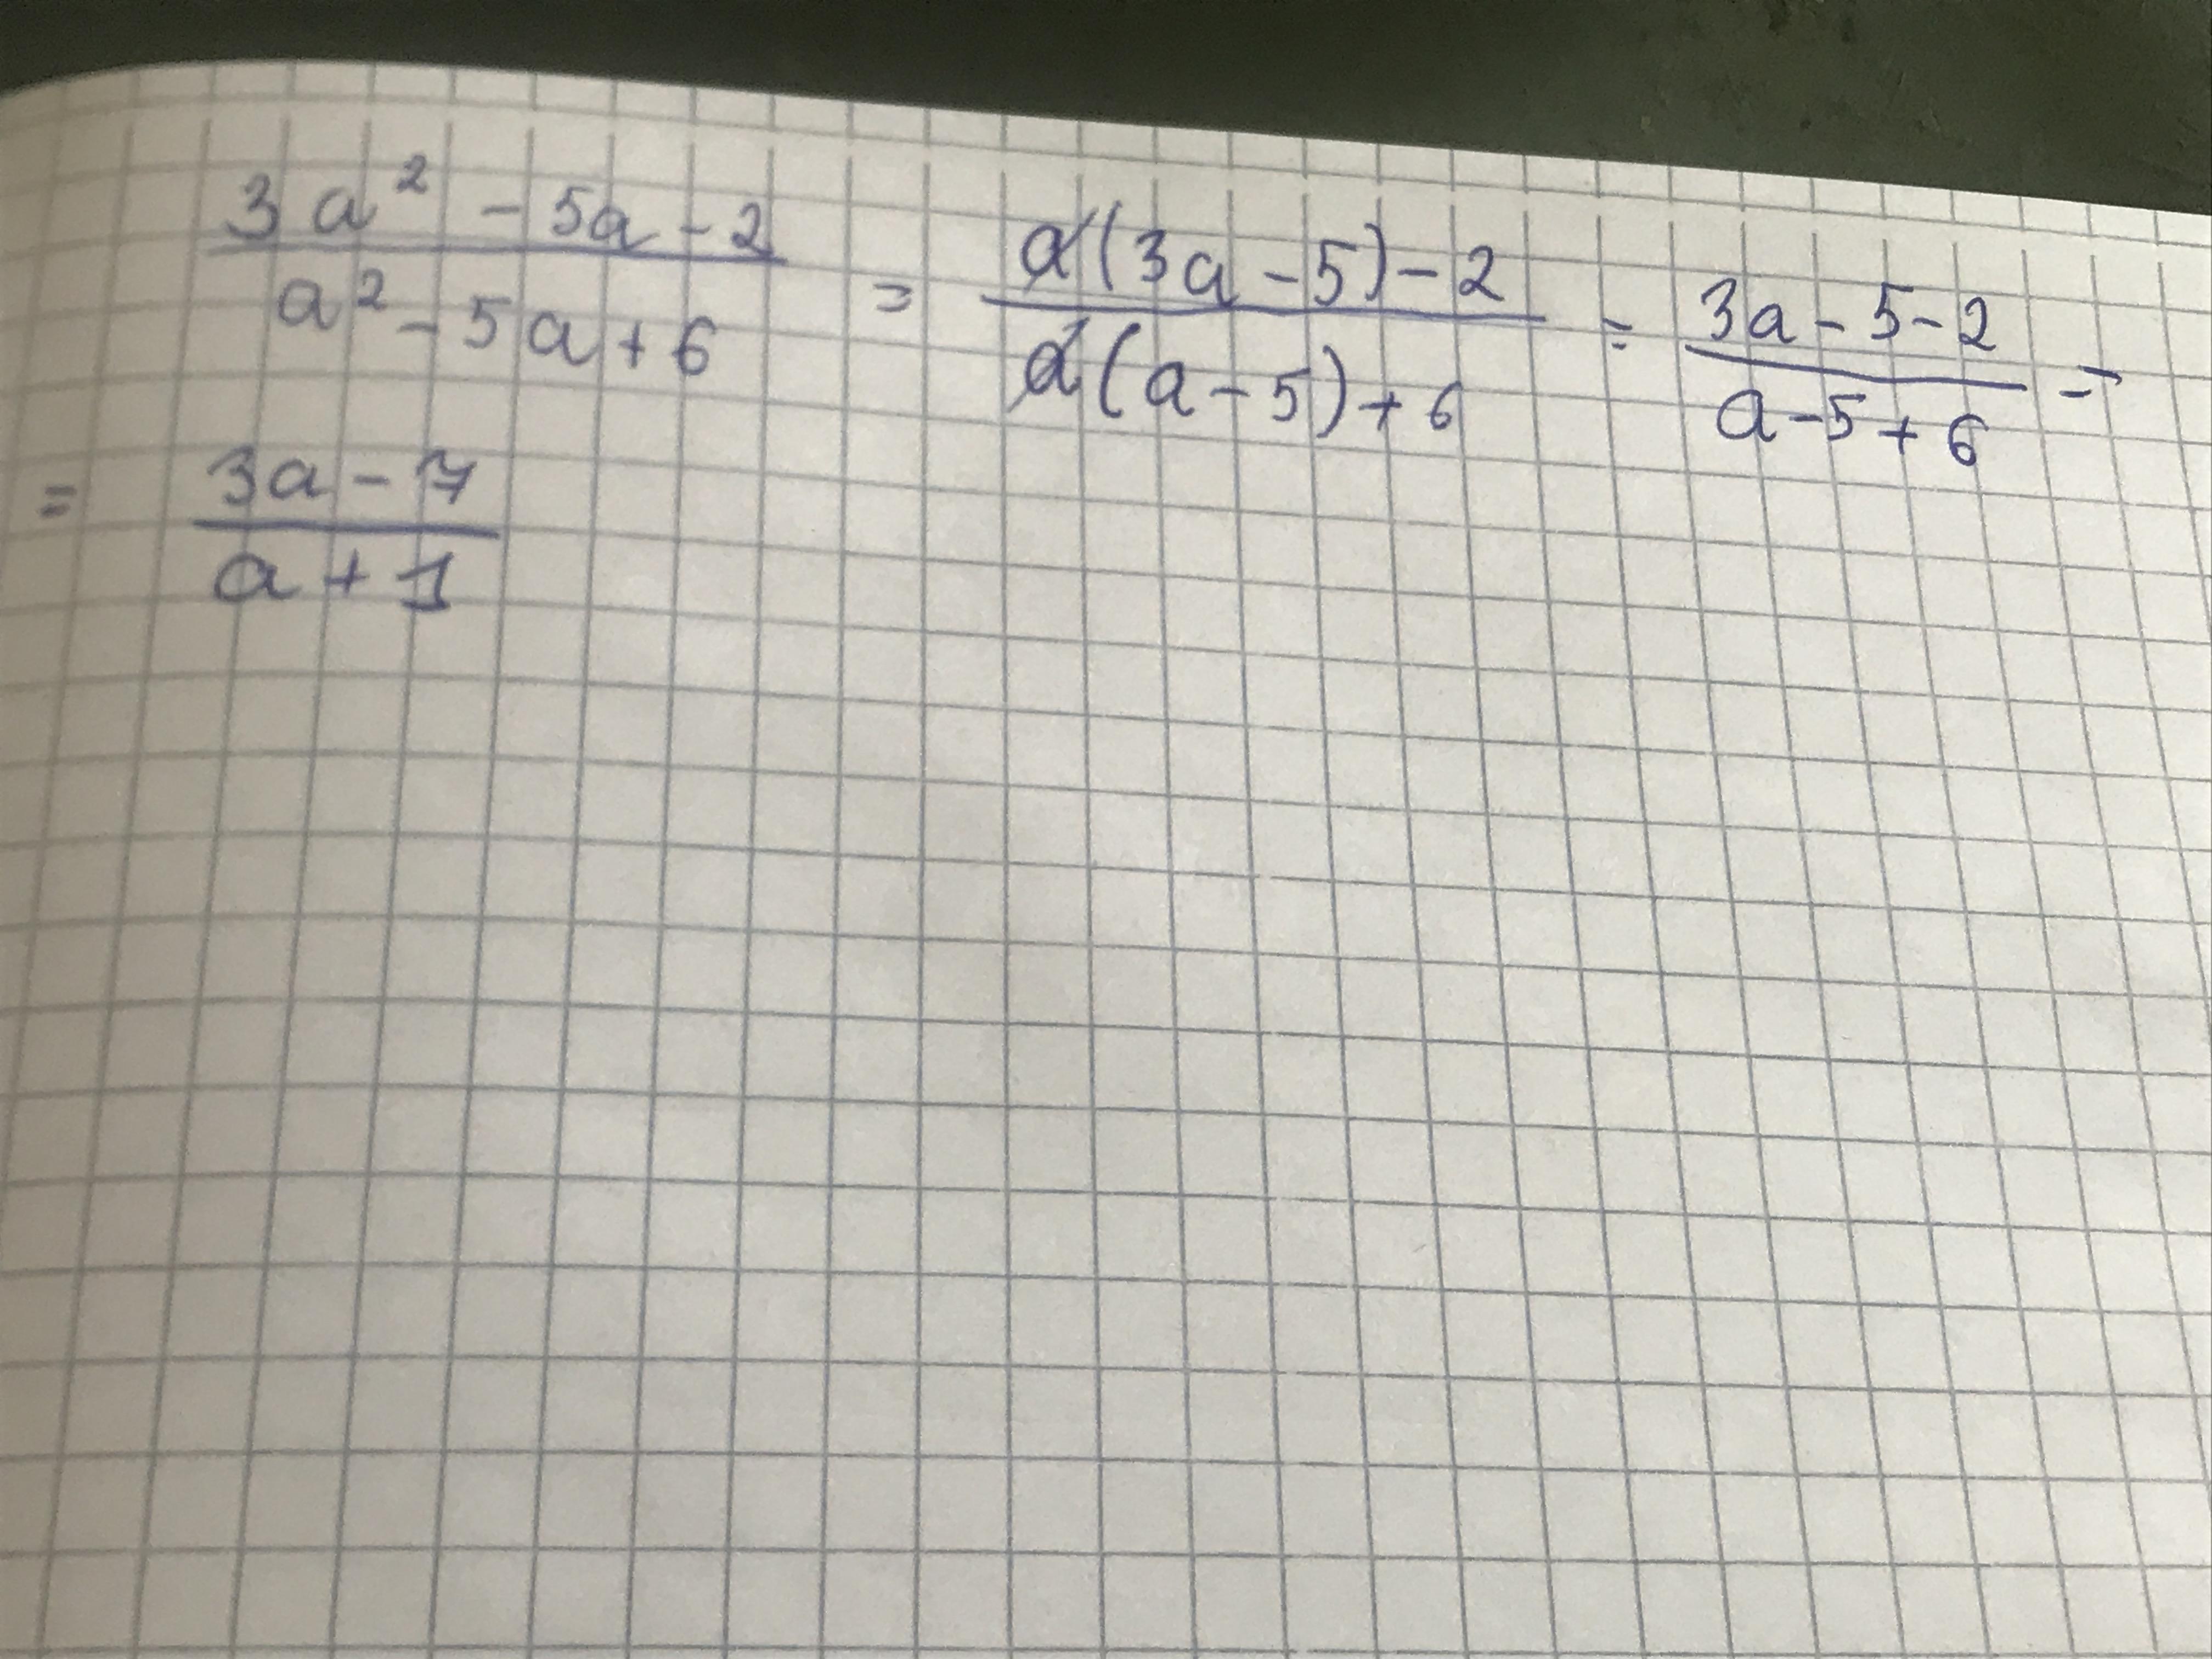 (3a² - 5a - 2)/(a² - 5a + 6) = (a(3a - 5) - 2)/(a(a - 5) + 6) = (3a - 5 - 2)/(a - 5 + 6) =
= (3a - 7)/(a + 1)